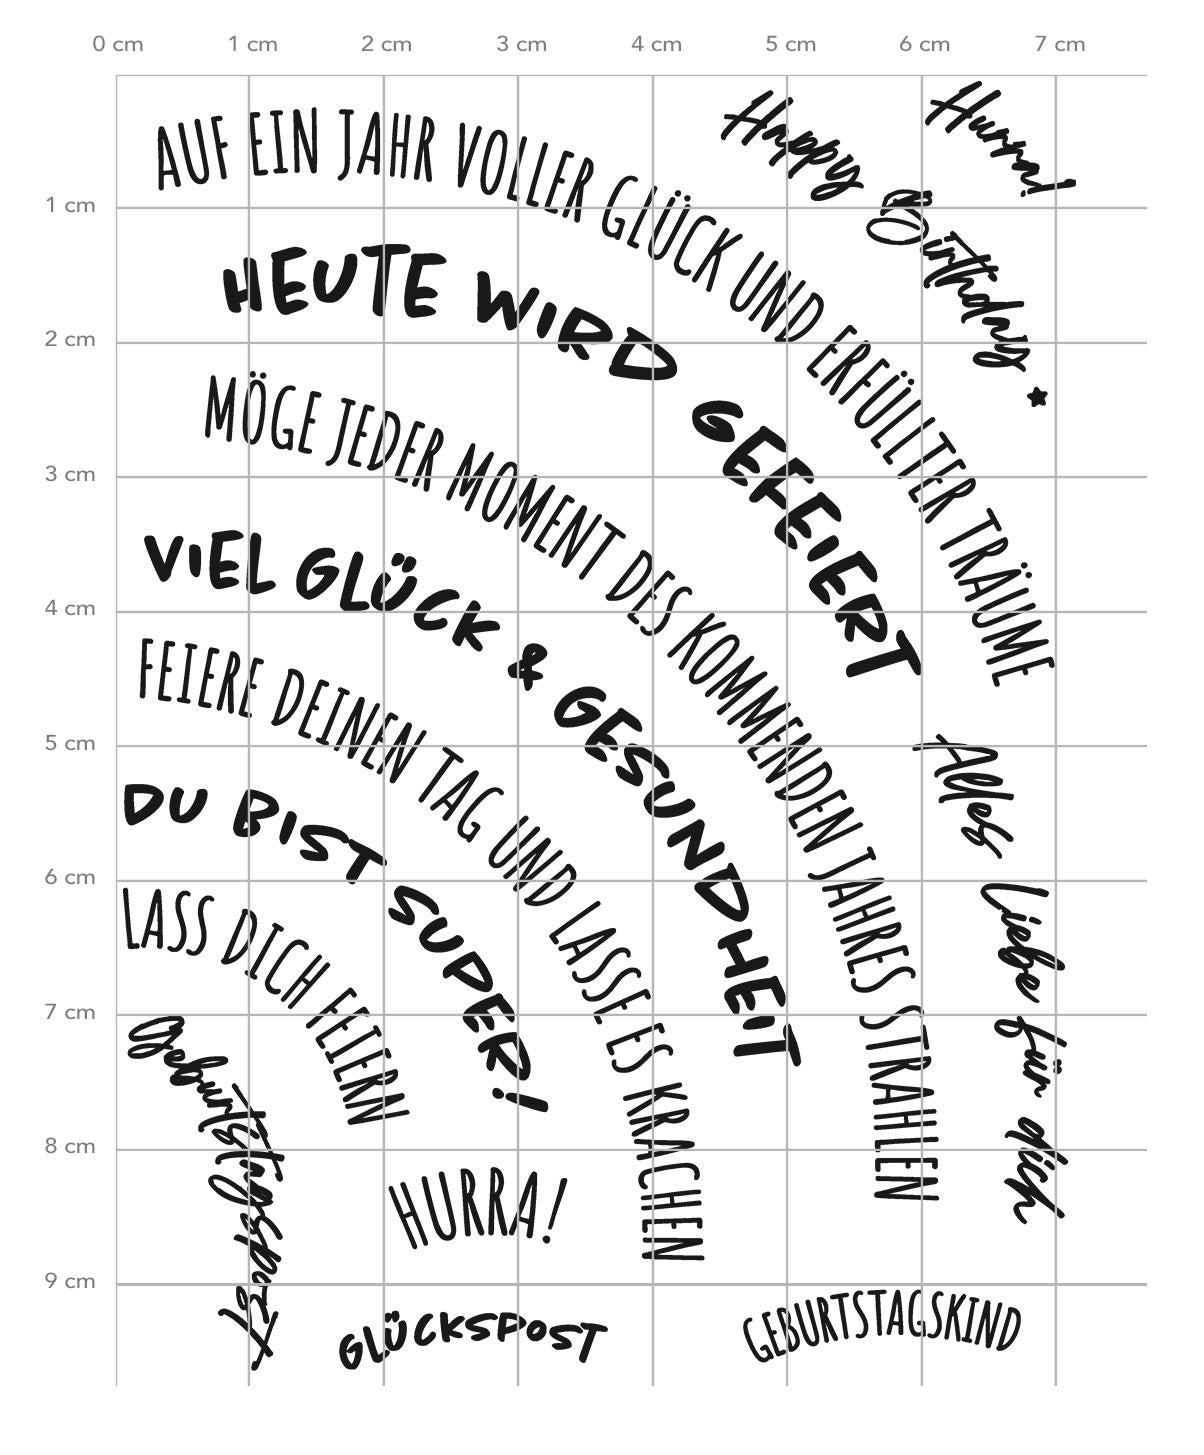 0 cm 1 cm 2 cm 3 cm 4 cm 5 cm 6 cm 7 cm
1 cm
2 cm
3 cm
4 cm
5 cm
6 cm
7 cm
8 cm
9 cm
AUF EIN JAHR VOLLER GLÜCK UND ERFÜLLTER TRÄUME
Happy Birthday
Hurra!
HEUTE WIRD GEFEIERT
MÖGE JEDER MOMENT DES KOMMENDEN JAHRES STRAHLEN
VIEL GLÜCK & GESUNDHEIT
FEIERE DEINEN TAG UND LASSE ES KRACHEN
Alles Liebe für dich
DU BIST SUPER!
LASS DICH FEIERN
Geburtstagspost
HURRA!
GLÜCKSPOST
GEBURTSTAGSKIND